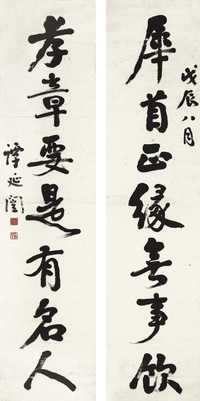 犀首正緣無事飲
戊辰八月
孝章要是有名人
譚延闓